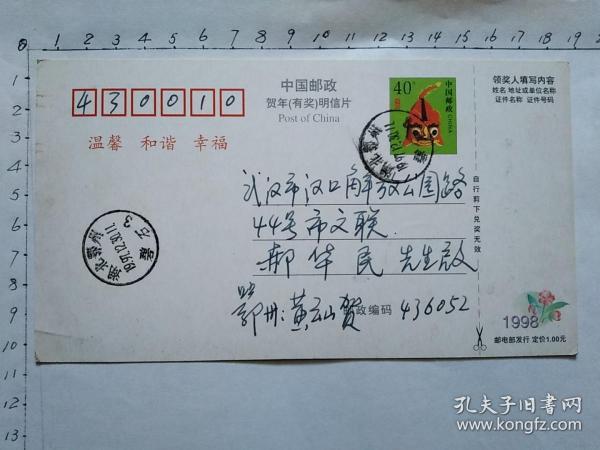 0 1 2 3 4 5 6 7 8 9 10 11 12 13 14 15 16 17 18 19
1
2
3
4
5
6
7
8
9
10
11
12
13
430010
中国邮政
贺年(有奖)明信片
Post of China
40分
中国邮政 CHINA
领奖人填写内容
姓名 地址或单位名称
证件名称 证件号码
温馨 和谐 幸福
湖北鄂州
1997.12.30.11
武汉市汉口解放公园路
44号市文联
郝华民 先生启
鄂州:黄云山贺
邮政编码 436052
自行剪下兑奖无效
1998
邮电部发行 定价1.00元
孔夫子旧书网
www.kongfz.com